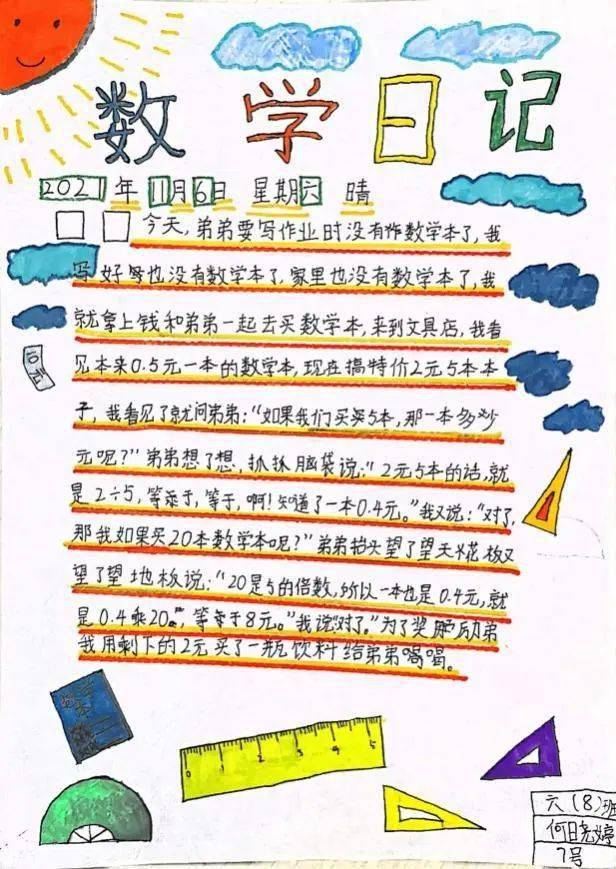 数学日记
2021年11月6日 星期六 晴
今天,弟弟要写作业时没有作数学本了,我
写好多也没有数学本了,家里也没有数学本了,我
就拿上钱和弟弟一起去买数学本,来到文具店,我看
见本来0.5元一本的数学本,现在搞特价2元5本本
子,我看见了就问弟弟:“如果我们买5本,那一本多少
元呢?”弟弟想了想,抓抓脑袋说:“2元5本的话,就
是2÷5,等于,等于,啊!知道了一本0.4元。”我又说:“对了,
那我如果买20本数学本呢?”弟弟抬头望了望天花板又
望了望地板说:“20是5的倍数,所以一本也是0.4元,就
是0.4乘20,等于8元。”我说“对了。”为了奖励弟
我用剩下的2元买了一瓶饮料给弟弟喝喝。
0 1 2 3 4 5
六(8)班
7号